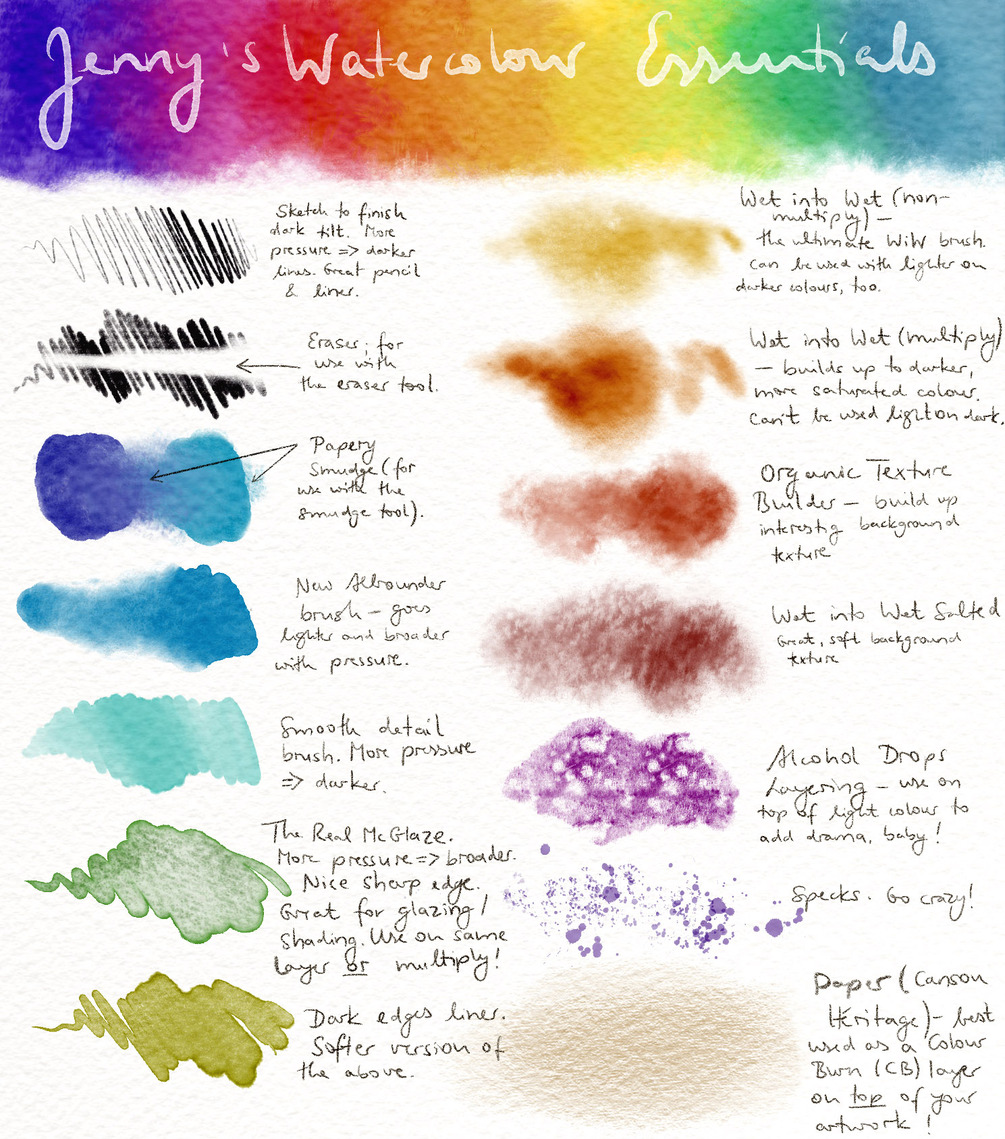 Jenny's Watercolour Essentials
Sketch to finish
dark tilt. More
pressure => darker
lines. Great pencil
& liner.
Eraser; for
use with
the eraser tool.
Papery
Smudge (for
use with the
smudge tool).
New Allrounder
brush – goes
lighter and broader
with pressure.
Smooth detail
brush. More pressure
=> darker.
The Real McGlaze.
More pressure => broader.
Nice sharp edge.
Great for glazing/
shading. Use on same
layer or multiply!
Dark edges liner.
Softer version of
the above.
Wet into Wet (non-
multiply) –
the ultimate WiW brush.
Can be used with lighter on
darker colours, too.
Wet into Wet (multiply)
– builds up to darker,
more saturated colour.
Can't be used light on dark.
Organic Texture
Builder – build up
interestig background
texture
Wet into Wet Salted
Great, soft background
texture
Alcohol Drops
Layering – use on
top of light colour to
add drama, baby!
Specks. Go crazy!
Paper (Canson
Heritage) – best
used as a Colour
Burn (CB) layer
on top of your
artwork!